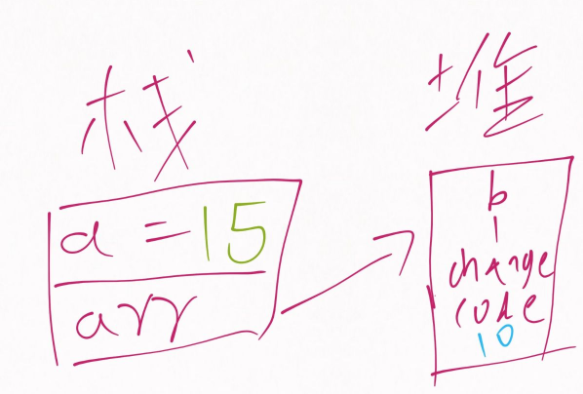 栈
堆
a = 15
arr
b
1
change
code
10